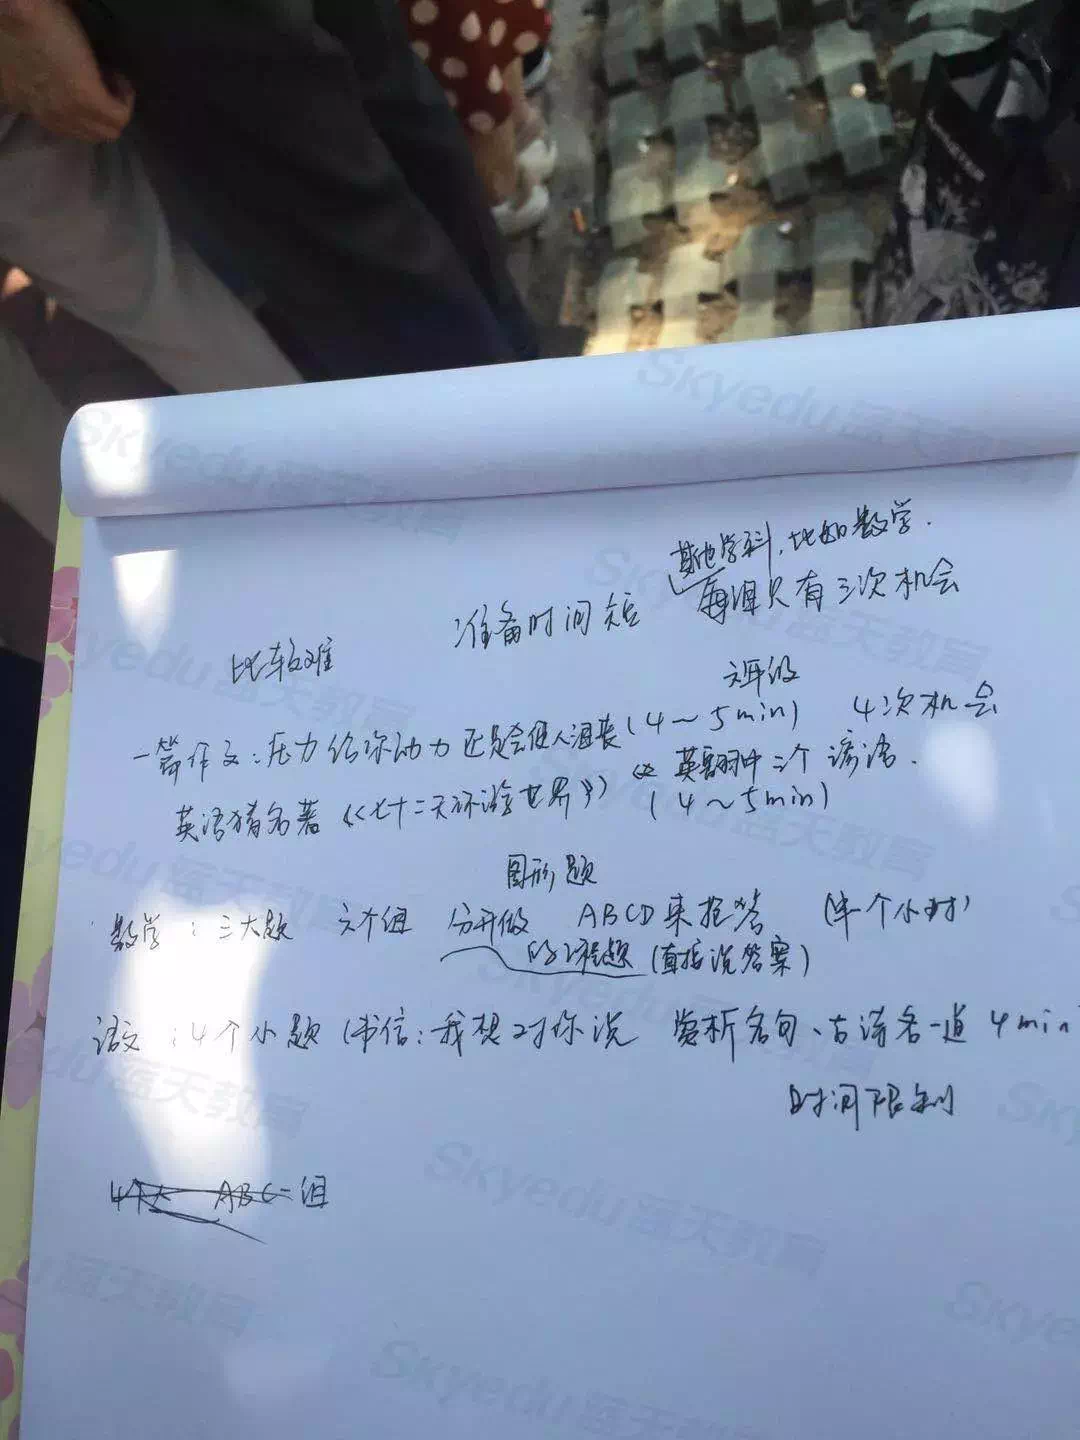 其他学科，比如数学.
准备时间短 每组只有三次机会
比较难
评级
一篇作文：压力给你动力还是会使人沮丧(4～5min) 4次机会
英语猜名著《七十二天环游世界》 英翻中三个谚语.
(4～5min)
图形题
数学：三大题 六个组 分开做 ABCD来抢答 (半个小时)
的话题 (直接说答案)
语文：4个小题(书信：我想对你说 赏析名句、古诗名一道 4min
时间限制
4个人 ABC=组
Skyedu蓝天教育